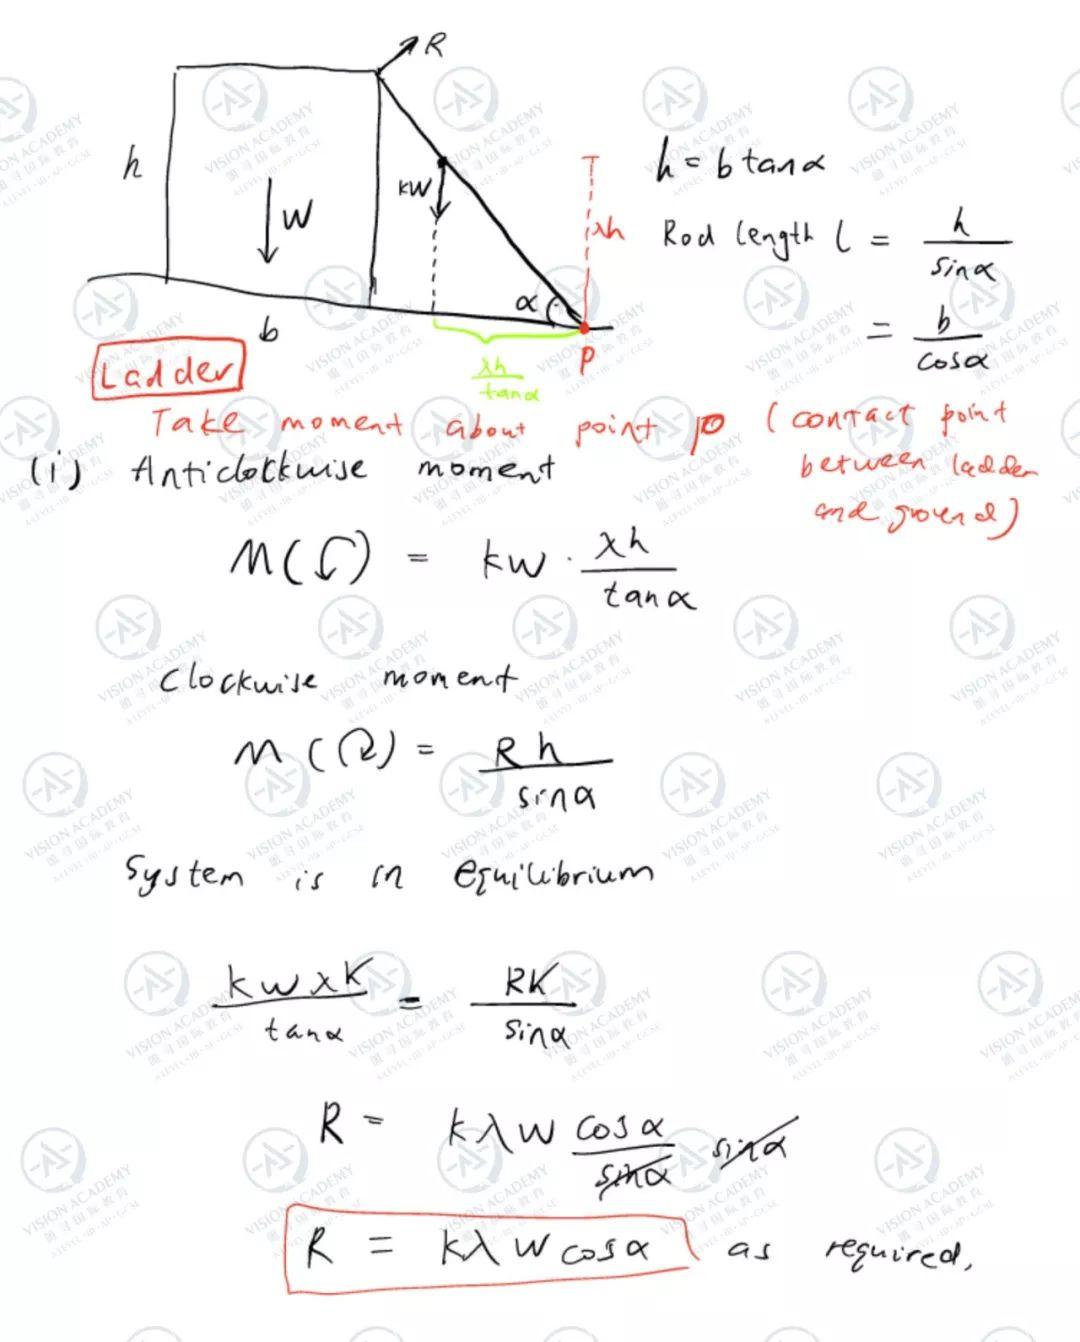 R
h
W
kW
λh
α
b
P
λh / tanα
h = b tanα
Rod length l = h / sinα
= b / cosα
Ladder
Take moment about point P (contact point
between ladder
and ground)
(i) Anticlockwise moment
M(↺) = kW · λh / tanα
Clockwise moment
M(↻) = Rh / sinα
System is in equilibrium
kWλh / tanα = Rh / sinα
R = kλW cosα / sinα sinα
R = kλW cosα as required.
VISION ACADEMY
A LEVEL·IB·AP·GCSE